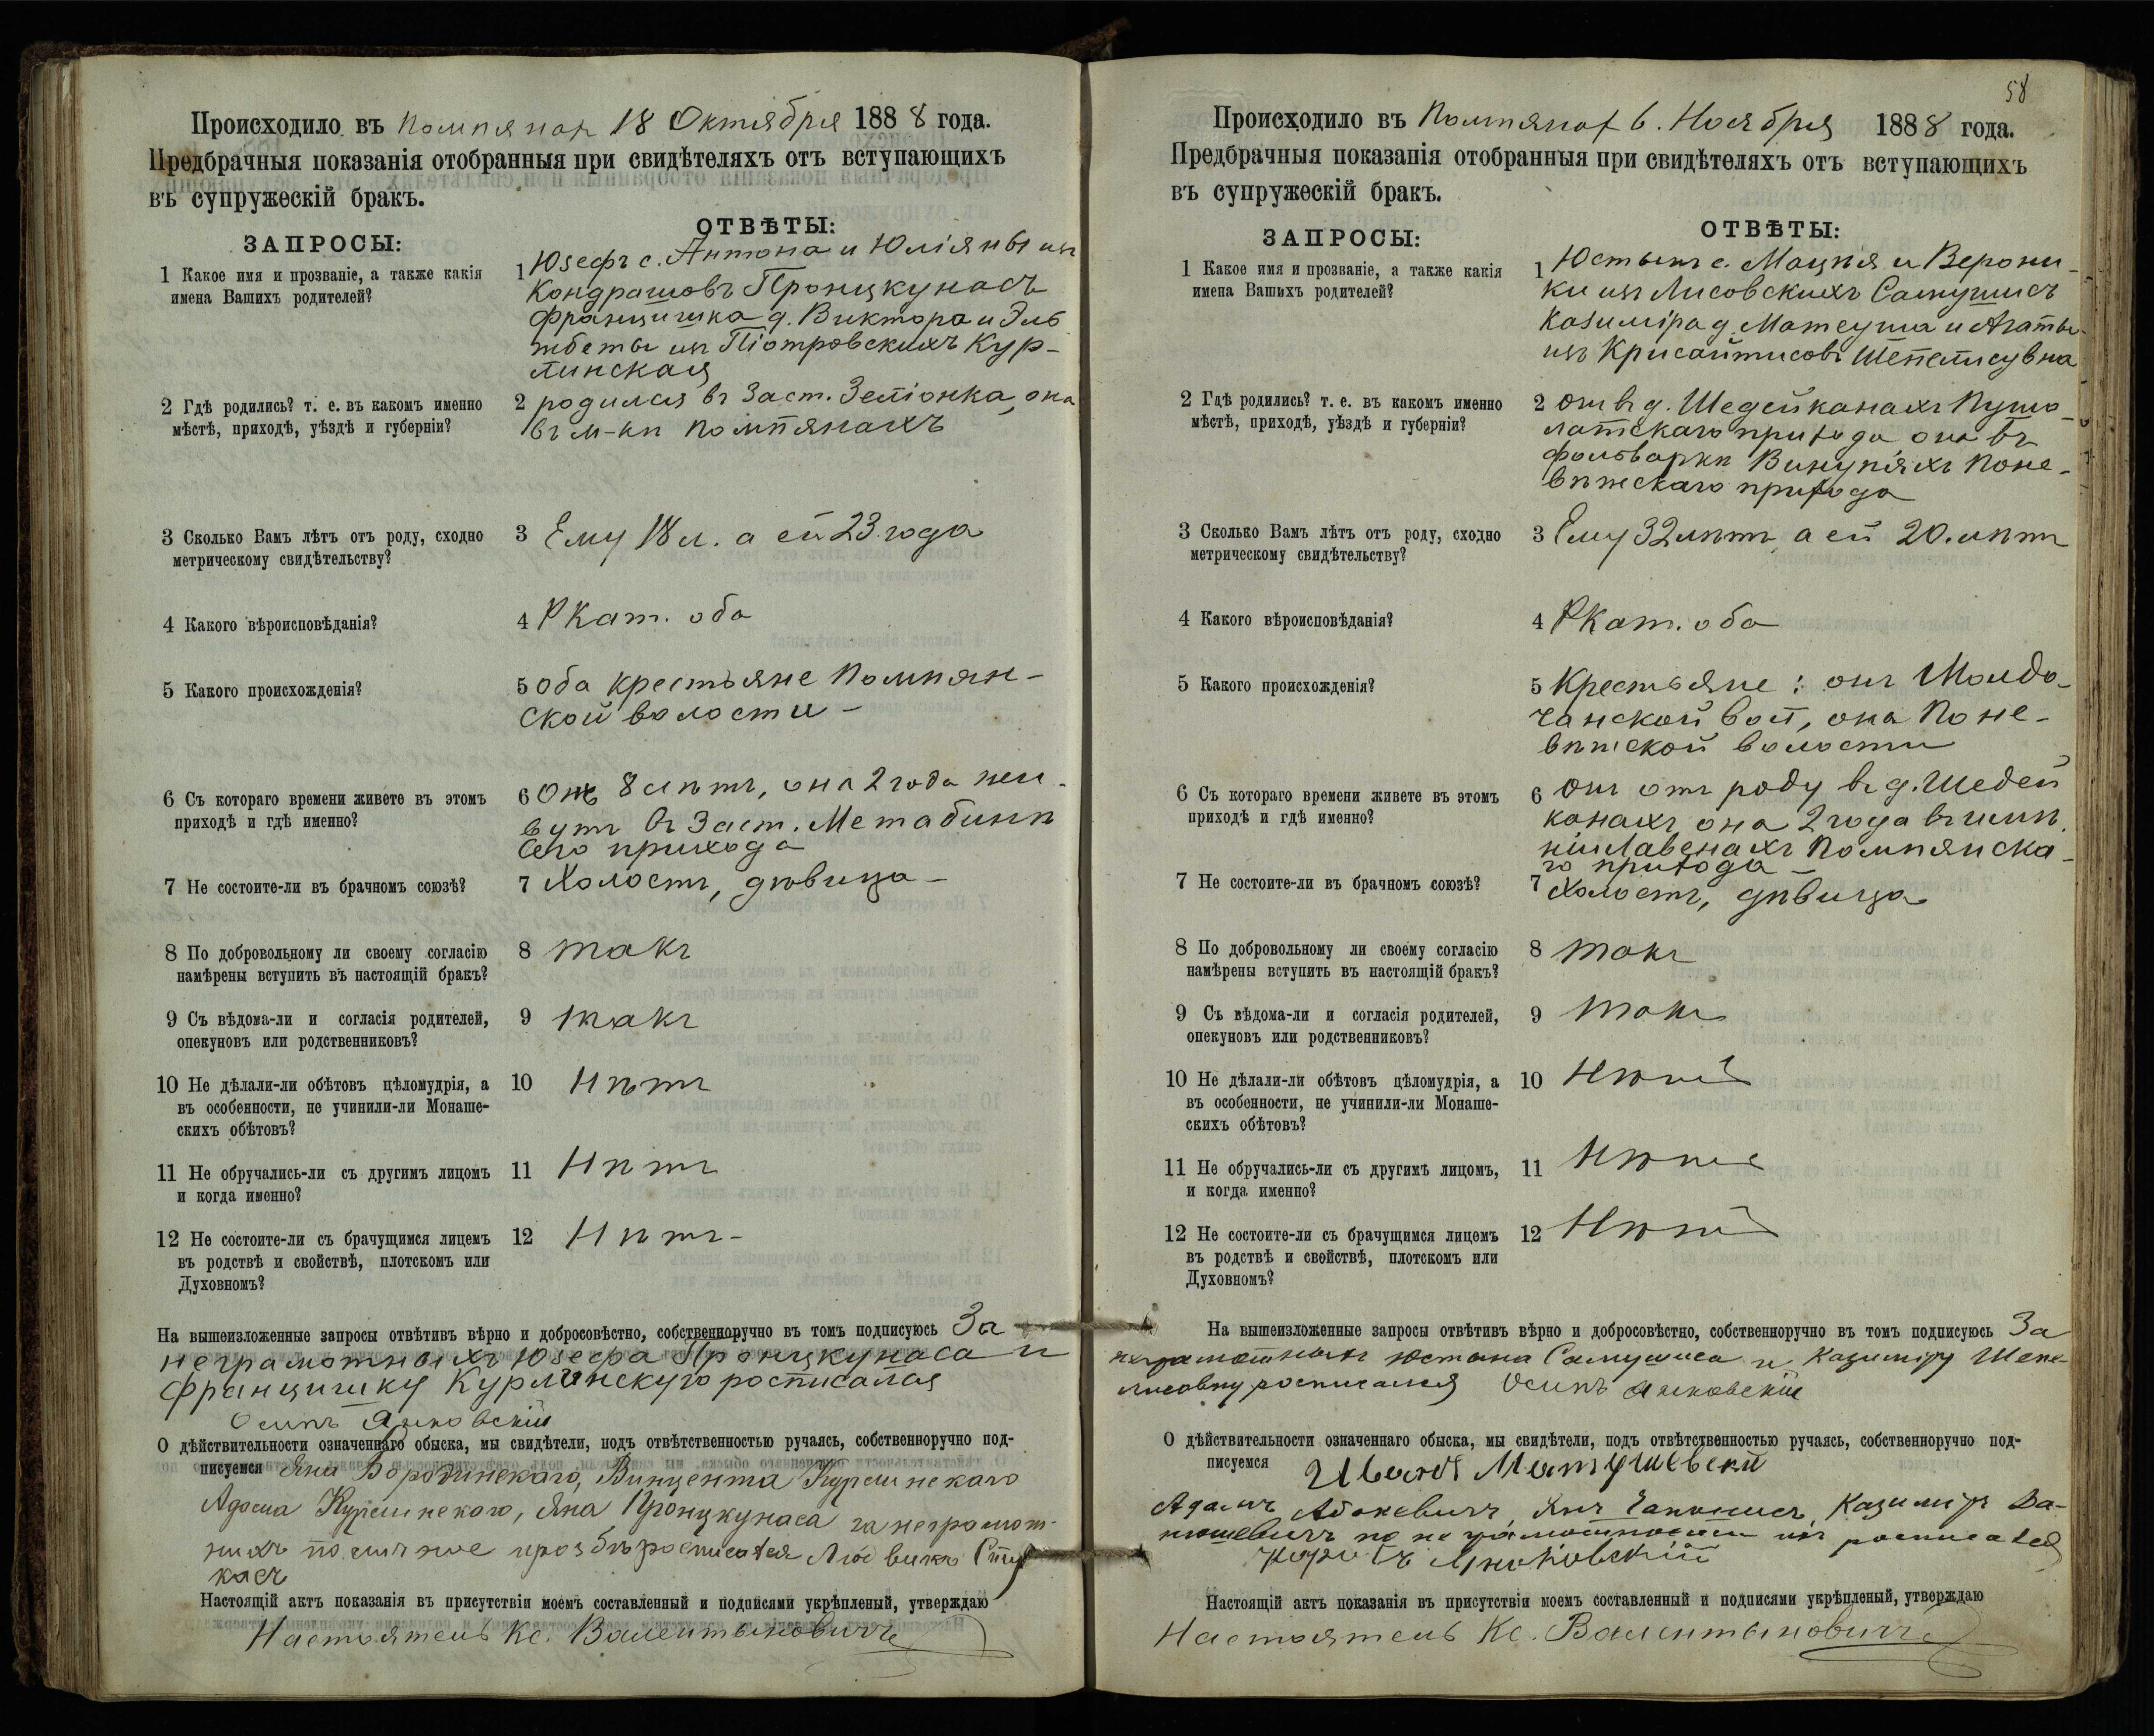 Происходило въ Помпянах 18 Октября 1888 года.
Предбрачныя показанія отобранныя при свидѣтеляхъ отъ вступающихъ
въ супружескій бракъ.
ЗАПРОСЫ:
ОТВѢТЫ:
1 Какое имя и прозваніе, а также какія
имена Вашихъ родителей?
1 Юзефъ с. Антона и Юліянны изъ
Кондрашовъ Пронцкунасъ
Францишка д. Виктора и Эль
жбеты изъ Піотровскихъ Кур-
линская
2 Гдѣ родились? т. е. въ какомъ именно
мѣстѣ, приходѣ, уѣздѣ и губерніи?
2 родился въ Заст. Зеліонка, она
въ м-кѣ Помпянахъ
3 Сколько Вамъ лѣтъ отъ роду, сходно
метрическому свидѣтельству?
3 Ему 18 л. а ей 23 года
4 Какого вѣроисповѣданія?
4 РКат. оба
5 Какого происхожденія?
5 оба крестьяне Помпян-
ской волости -
6 Съ котораго времени живете въ этомъ
приходѣ и гдѣ именно?
6 Онъ 8 лѣтъ, она 2 года жи-
вутъ въ Заст. Метабинѣ
сего прихода
7 Не состоите-ли въ брачномъ союзѣ?
7 Холостъ, дѣвица -
8 По добровольному ли своему согласію
намѣрены вступить въ настоящій бракъ?
8 такъ
9 Съ вѣдома-ли и согласія родителей,
опекуновъ или родственниковъ?
9 такъ
10 Не дѣлали-ли обѣтовъ цѣломудрія, а
въ особенности, не учинили-ли Монаше-
скихъ обѣтовъ?
10 Нѣтъ
11 Не обручались-ли съ другимъ лицомъ
и когда именно?
11 Нѣтъ
12 Не состоите-ли съ брачущимся лицемъ
въ родствѣ и свойствѣ, плотскомъ или
Духовномъ?
12 Нѣтъ-
На вышеизложенные запросы отвѣтивъ вѣрно и добросовѣстно, собственноручно въ томъ подписуюсь За
неграмотныхъ Юзефа Пронцкунаса и
Францишку Курлинскую росписался
Осипъ Янковскій
О дѣйствительности означеннаго обыска, мы свидѣтели, подъ отвѣтственностью ручаясь, собственноручно под-
писуемся Яна Воротинскаго, Винцента Курлинскаго
Адама Курлинскаго, Яна Пронцкунаса за неграмот-
ныхъ по личное прозбѣ росписался Людвикъ
Настоящій актъ показанія въ присутствіи моемъ составленный и подписями укрѣпленый, утверждаю
Настоятель Кс. Валентыновичъ
58
Происходило въ Помпянах 6. Ноября 1888 года.
Предбрачныя показанія отобранныя при свидѣтеляхъ отъ вступающихъ
въ супружескій бракъ.
ЗАПРОСЫ:
ОТВѢТЫ:
1 Какое имя и прозваніе, а также какія
имена Вашихъ родителей?
1 Юстынъ с. Мацѣя и Верони-
ки изъ Лисовскихъ Самушисъ
Казиміра д. Матеуша и Агаты
изъ Крисайтисовъ Шепелисувна
2 Гдѣ родились? т. е. въ какомъ именно
мѣстѣ, приходѣ, уѣздѣ и губерніи?
2 Онъ въ д. Шедейканахъ Пушо-
латскаго прихода она въ
фольваркѣ Винупяхъ Поне-
вѣжскаго прихода
3 Сколько Вамъ лѣтъ отъ роду, сходно
метрическому свидѣтельству?
3 Ему 32 лѣтъ, а ей 20. лѣтъ
4 Какого вѣроисповѣданія?
4 РКат. оба
5 Какого происхожденія?
5 Крестьяне: онъ
ской вол, она Поне-
вѣжской волости
6 Съ котораго времени живете въ этомъ
приходѣ и гдѣ именно?
6 Онъ отъ роду въ д. Шедей
канахъ она 2 года въ имѣ
ніи Лавенахъ Помпянска-
го прихода -
7 Не состоите-ли въ брачномъ союзѣ?
7 Холостъ, дѣвица
8 По добровольному ли своему согласію
намѣрены вступить въ настоящій бракъ?
8 такъ
9 Съ вѣдома-ли и согласія родителей,
опекуновъ или родственниковъ?
9 такъ
10 Не дѣлали-ли обѣтовъ цѣломудрія, а
въ особенности, не учинили-ли Монаше-
скихъ обѣтовъ?
10 Нѣтъ
11 Не обручались-ли съ другимъ лицомъ,
и когда именно?
11 Нѣтъ
12 Не состоите-ли съ брачущимся лицемъ
въ родствѣ и свойствѣ, плотскомъ или
Духовномъ?
12 Нѣтъ
На вышеизложенные запросы отвѣтивъ вѣрно и добросовѣстно, собственноручно въ томъ подписуюсь За
неграмотныхъ Юстына Самушиса и Казиміру Шепе-
лисовну росписался Осипъ Янковскій
О дѣйствительности означеннаго обыска, мы свидѣтели, подъ отвѣтственностью ручаясь, собственноручно под-
писуемся Иванъ Матушевскій
Адамъ Абакевичъ, Янъ Казиміръ
по неграмотности ихъ росписался
Янковскій
Настоящій актъ показанія въ присутствіи моемъ составленный и подписями укрѣпленый, утверждаю
Настоятель Кс. Валентыновичъ